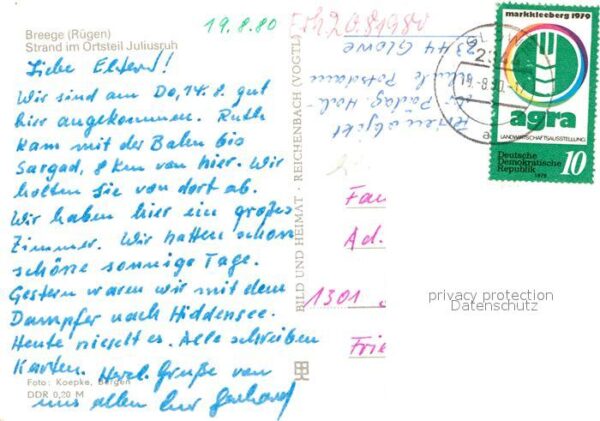 Breege (Rügen)
Strand im Ortsteil Juliusruh
19.8.80
Erh. 20.8.1980
Liebe Eltern!
Wir sind am Do, 14.8. gut
hier angekommen. Ruth
kam mit der Bahn bis
Sargad, 8 km von hier. Wir
holten sie von dort ab.
Wir haben hier ein großes
Zimmer. Wir hatten schon
schöne sonnige Tage.
Gestern waren wir mit dem
Dampfer nach Hiddensee.
Heute nieselt es. Alle schreiben
Karten. Herzl. Grüße von
uns allen Eur Gerhard
Foto: Koepke, Bergen
DDR 0,20 M
BILD UND HEIMAT · REICHENBACH (VOGTL)
Ferienobjekt
der Pädag. Hoch-
schule Potsdam
2344 Glowe
Fa
Ad.
1301
Frie
markkleeberg 1979
agra
LANDWIRTSCHAFTSAUSSTELLUNG
Deutsche
Demokratische
Republik
10
1979
GLOWE
2344
19.-8.80.-17
a
privacy protection
Datenschutz